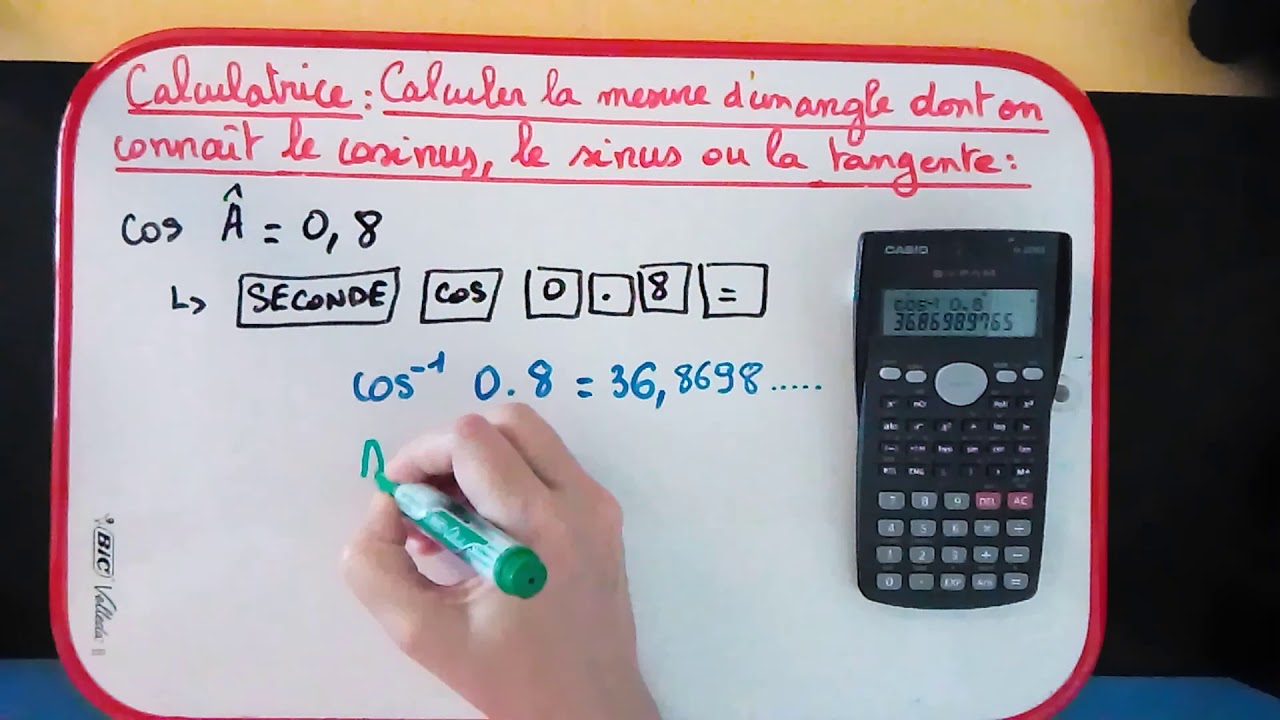 Calculatrice : Calculer la mesure d'un angle dont on
connaît le cosinus, le sinus ou la tangente :
cos Â = 0,8
↳ SECONDE cos 0 . 8 =
cos⁻¹ 0.8 = 36,8698.....
CASIO
cos⁻¹ 0.8
36.86989765
7 8 9 DEL AC
4 5 6 × ÷
1 2 3 + −
0 . EXP Ans =
BIC Velleda